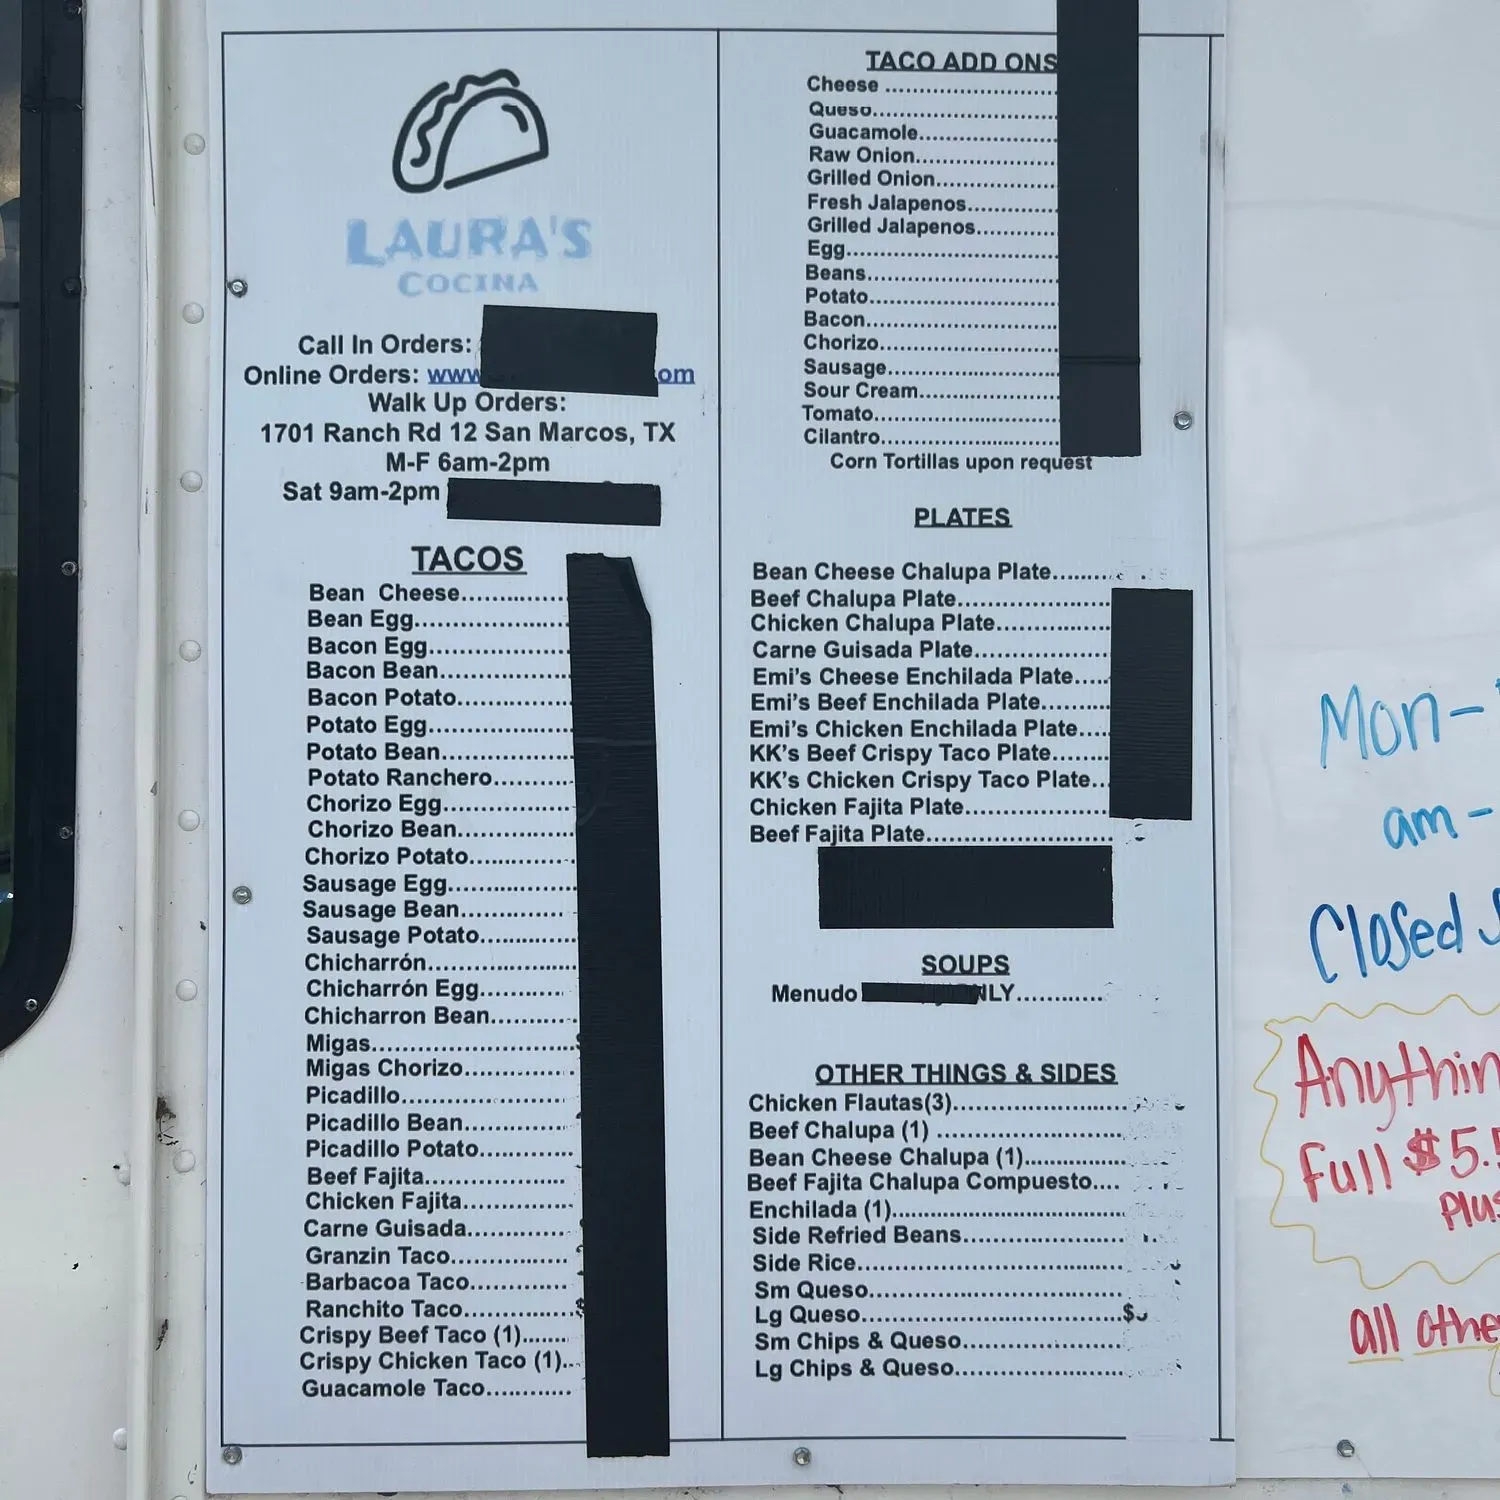 LAURA'S
COCINA
Call In Orders:
Online Orders: www om
Walk Up Orders:
1701 Ranch Rd 12 San Marcos, TX
M-F 6am-2pm
Sat 9am-2pm
TACOS
Bean Cheese............
Bean Egg..................
Bacon Egg................
Bacon Bean..............
Bacon Potato............
Potato Egg................
Potato Bean..............
Potato Ranchero........
Chorizo Egg..............
Chorizo Bean............
Chorizo Potato...........
Sausage Egg.............
Sausage Bean...........
Sausage Potato..........
Chicharrón................
Chicharrón Egg..........
Chicharron Bean.........
Migas........................
Migas Chorizo............
Picadillo....................
Picadillo Bean............
Picadillo Potato..........
Beef Fajita.................
Chicken Fajita............
Carne Guisada...........
Granzin Taco.............
Barbacoa Taco...........
Ranchito Taco............$
Crispy Beef Taco (1)......
Crispy Chicken Taco (1)..
Guacamole Taco..........
TACO ADD ONS
Cheese ......................
Queso........................
Guacamole..................
Raw Onion..................
Grilled Onion...............
Fresh Jalapenos...........
Grilled Jalapenos..........
Egg............................
Beans.........................
Potato.........................
Bacon.........................
Chorizo.......................
Sausage......................
Sour Cream.................
Tomato.......................
Cilantro.......................
Corn Tortillas upon request
PLATES
Bean Cheese Chalupa Plate........
Beef Chalupa Plate....................
Chicken Chalupa Plate...............
Carne Guisada Plate..................
Emi's Cheese Enchilada Plate.....
Emi's Beef Enchilada Plate.........
Emi's Chicken Enchilada Plate....
KK's Beef Crispy Taco Plate........
KK's Chicken Crispy Taco Plate..
Chicken Fajita Plate...................
Beef Fajita Plate........................
SOUPS
Menudo NLY............
OTHER THINGS & SIDES
Chicken Flautas(3)........................
Beef Chalupa (1) ..........................
Bean Cheese Chalupa (1)..............
Beef Fajita Chalupa Compuesto....
Enchilada (1)................................
Side Refried Beans......................
Side Rice.....................................
Sm Queso....................................
Lg Queso.....................................$
Sm Chips & Queso......................
Lg Chips & Queso.......................
Mon-
am-
Closed
Anythin
Full $5.5
Plus
all othe